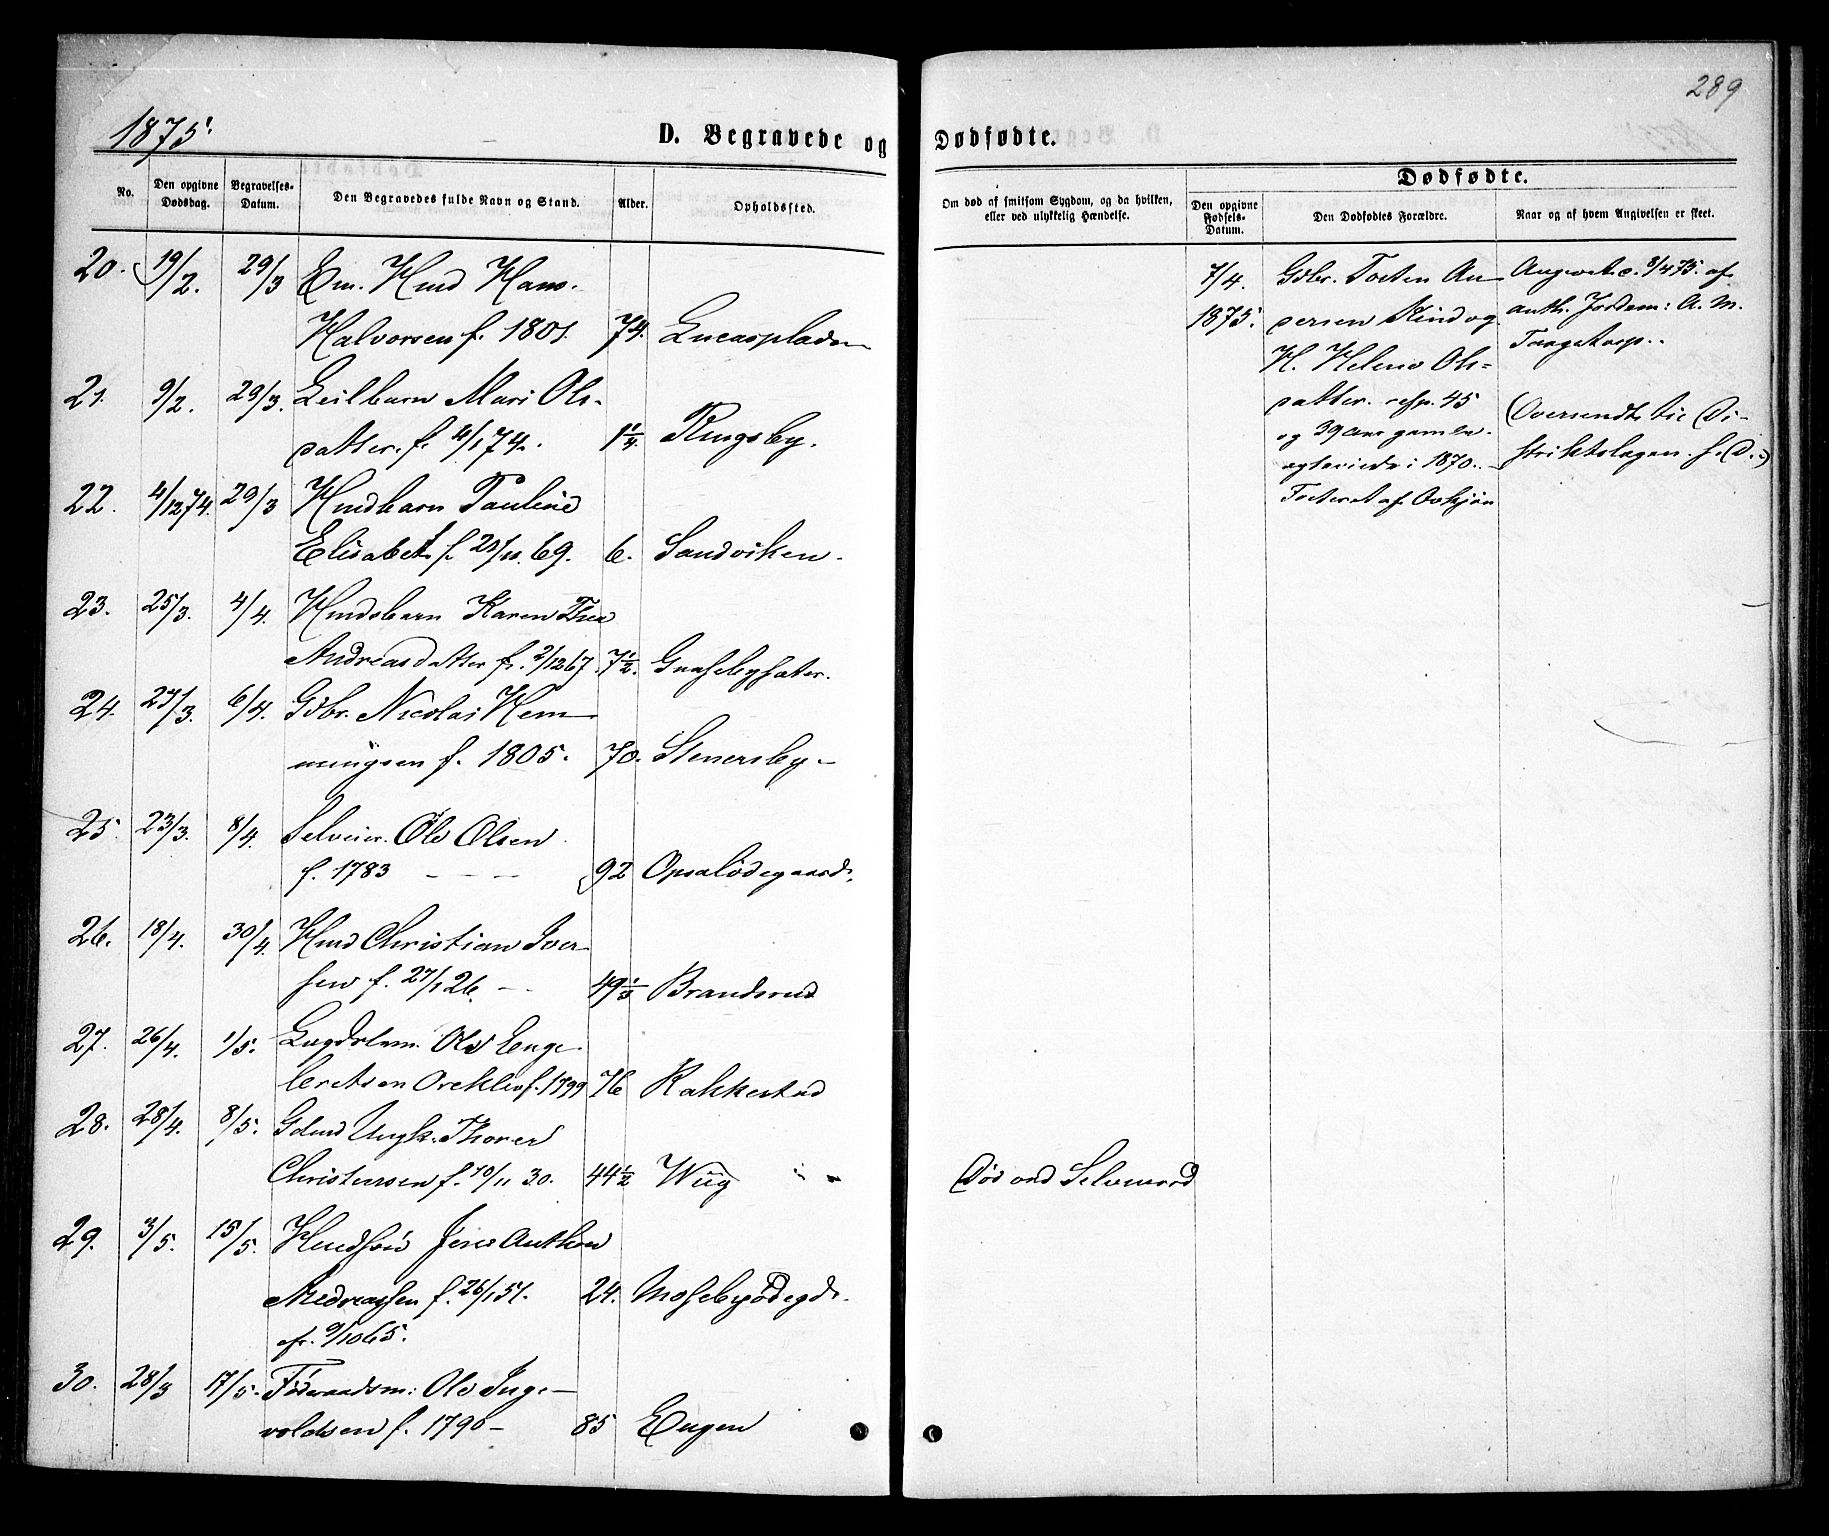 289
1875.
D. Begravede og Dødfødte.
No.
Den opgivne Dødsdag.
Begravelses-Datum.
Den Begravedes fulde Navn og Stand.
Alder.
Opholdssted.
Om død af smitsom Sygdom, og da hvilken,
eller ved ulykkelig Hændelse.
Dødfødte.
Den opgivne Fødsels-Datum.
Den Dødfødtes Forældre.
Naar og af hvem Angivelsen er skeet.
20. 19/2. 29/3 Em. Hmd Hans
Halvorsen f. 1801. 74. Lucaspladsen
21. 9/2. 29/3. Leilbarn Mari Ols-
datter. f. 4/1 74. 1 1/4. Ringsby.
22. 4/12 74. 29/3 Hmdbarn Pauline
Elisabet f. 69. 6. Sandviken.
23. 25/3. 4/4. Hmdsbarn Karen Thea
Andreasdatter f. 2/12 67. 7 1/2. Gaasebysæter.
24. 27/3. 6/4. Gdbr. Nicolai Hem-
mingsen f. 1805. 70. Stenersby-
25. 23/3. 8/4. Selveier. Ole Olsen
f. 1783 - - - 92 Opsalødegaard.
26. 18/4. 30/4. Hmd Christian Iver-
sen f. 27/1 26. - 49 1/3 Brandsrud
27. 26/4. 1/5. Lægdslem. Ole Enge-
bretsen Oreklev f. 1799 76 Rakkestad
28. 28/4. 8/5. Gdmd Ungk. Thorer
Christensen f. 10/11 30. 44 1/2 Wiig " " Død ved Selvmord
29. 3/5. 15/5. Hmdsøn Jens Anthon
Andreassen f. 26/1 51. 24. Mosebyødegd.
cfr. 9/10 65.
30. 28/3 17/5. Føderaadsm: Ole Inge-
voldsen f. 1790 - 85 Engen
7/4.
1875.
Gdbr. Tosten An-
dersen Kind og
H. Helene Ols-
datter. resp. 45
og 39 aar gamle.
egteviede i 1870.-
Tosten af
Angivet d. 8/4 75. af
auth. Jordem: A. M.
Torgetorp..
(Oversendt til Di-
striktslægen. s. D.)